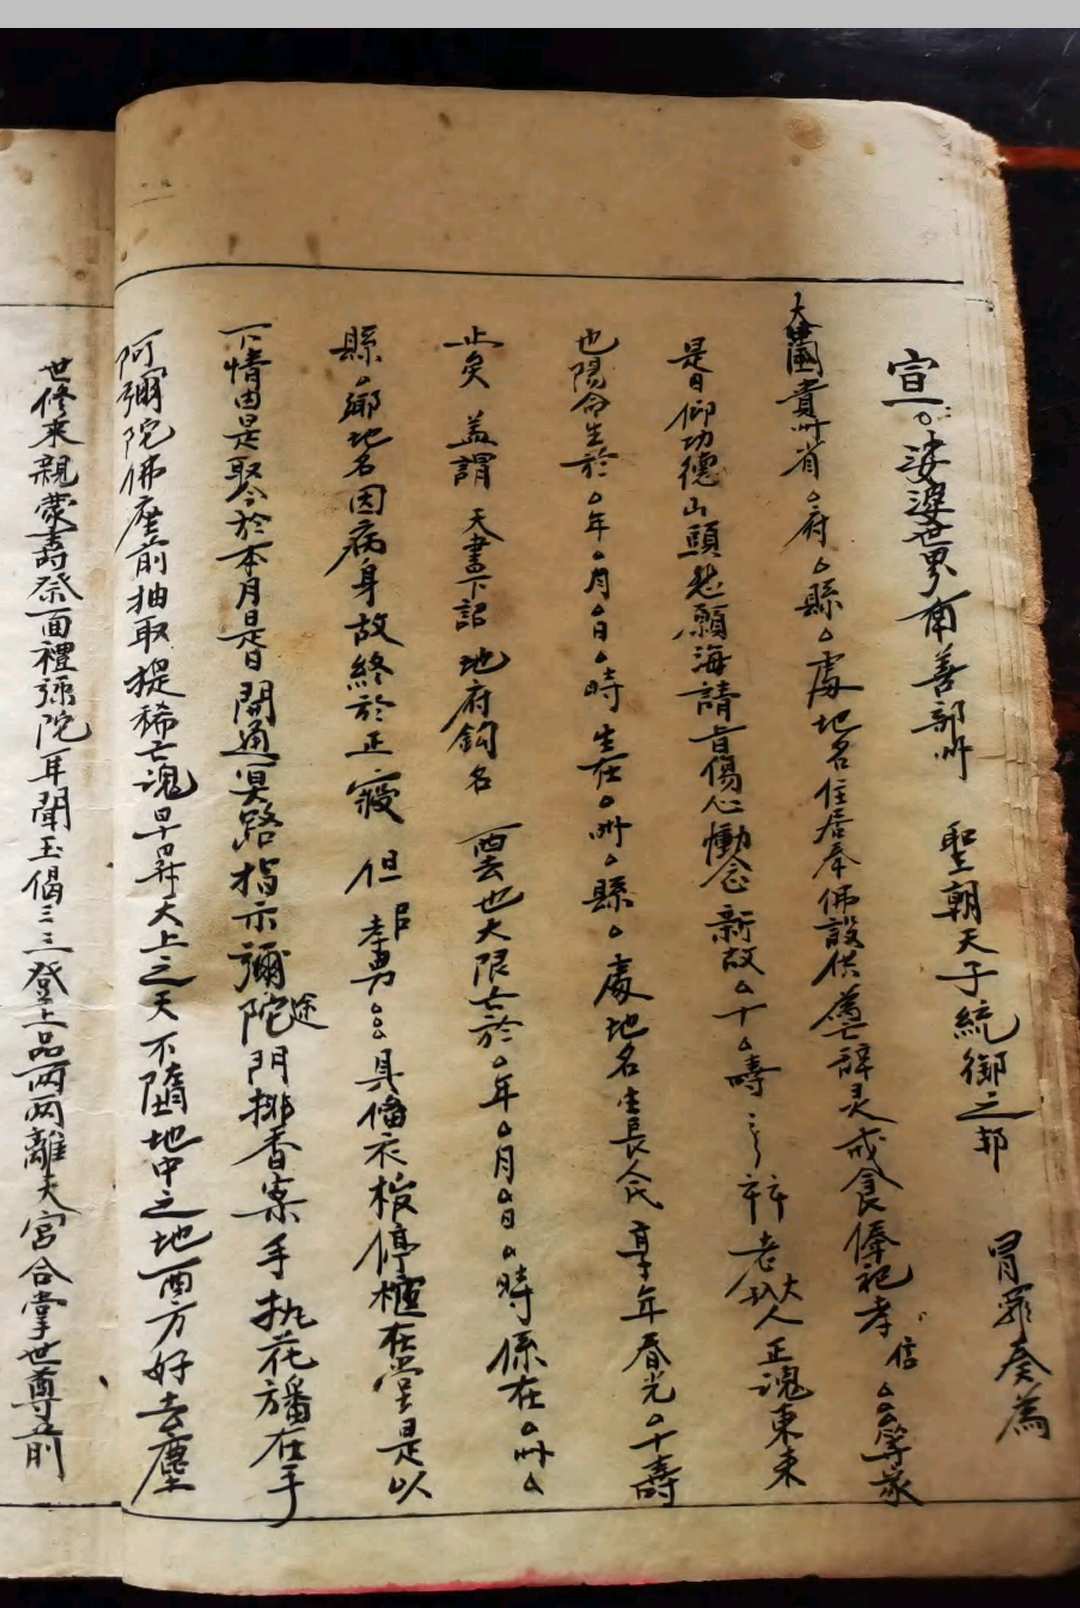 宣 ○娑婆世界南善部州 聖朝天子統御之邦 冒罪奏為
大國貴州省○府○縣○處地名住居奉佛設供薦亡辞灵戒食俸祀孝信○○○孥家
是日仰功德山頭慈願海請旨傷心慟念新故○十○壽 辞老大人正魂東来
也陽命生於○年○月○日○時生在○州○縣○處地名生長人氏 享年春光○十壽
止矣 盖謂 天書下詔 地府鈎名 嗚也大限亡於○年○月○日○時係在○州○
縣○鄉地名因病身故終於正寢 但 孝男○○○具備衣棺停柩在堂是以
下情由是取今於本月是日開通冥路指示彌陀途門排香案手执花旛在手
阿彌陀佛座前抽取提稀亡魂早昇天上之天不墮地中之地西方好去塵
世修来親蒙壽祭面禮彌陀耳聞玉偈三三登上品两两離天宮合掌世尊前